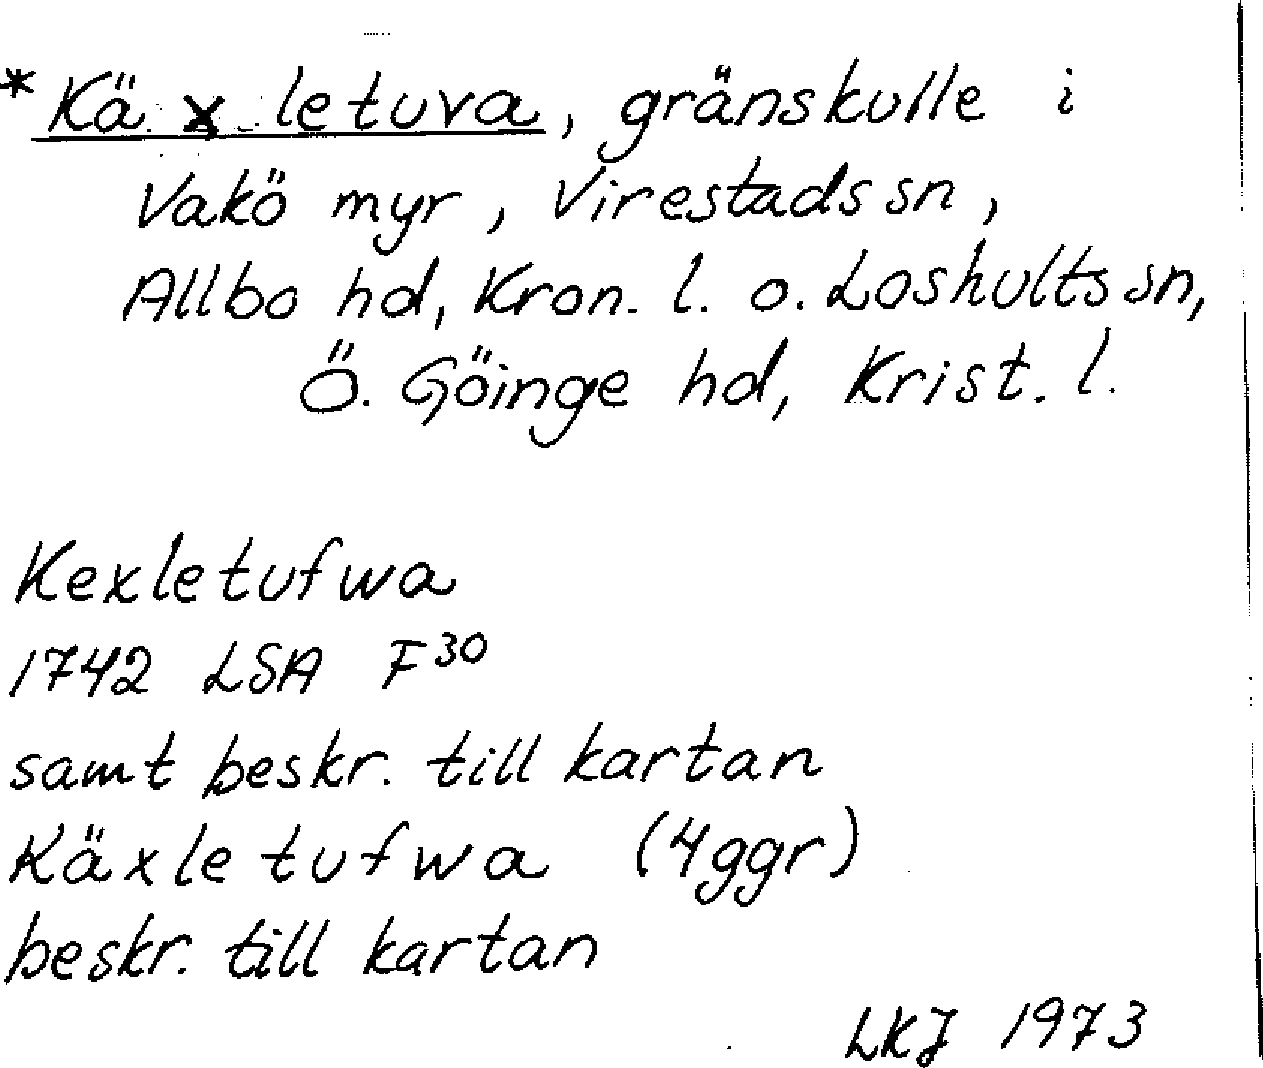 *Käxletuva, gränskulle i
Vakö myr, Virestads sn,
Allbo hd, Kron. l. o. Loshults sn,
Ö. Göinge hd, Krist. l.
Kexletufwa
1742 LSA F30
samt beskr. till kartan
Käxle tufwa (4ggr)
beskr. till kartan
LKJ 1973